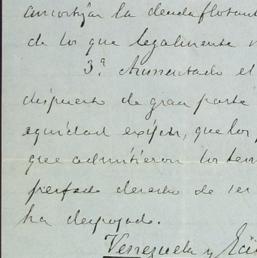 amortizar la deuda flotant
de los que legalmente
3ª Aumentado el
dispuesto de gran parte
equidad exigen, que los
que admitieron los
perfecto derecho de ser
ha despojado.
Venezuela y